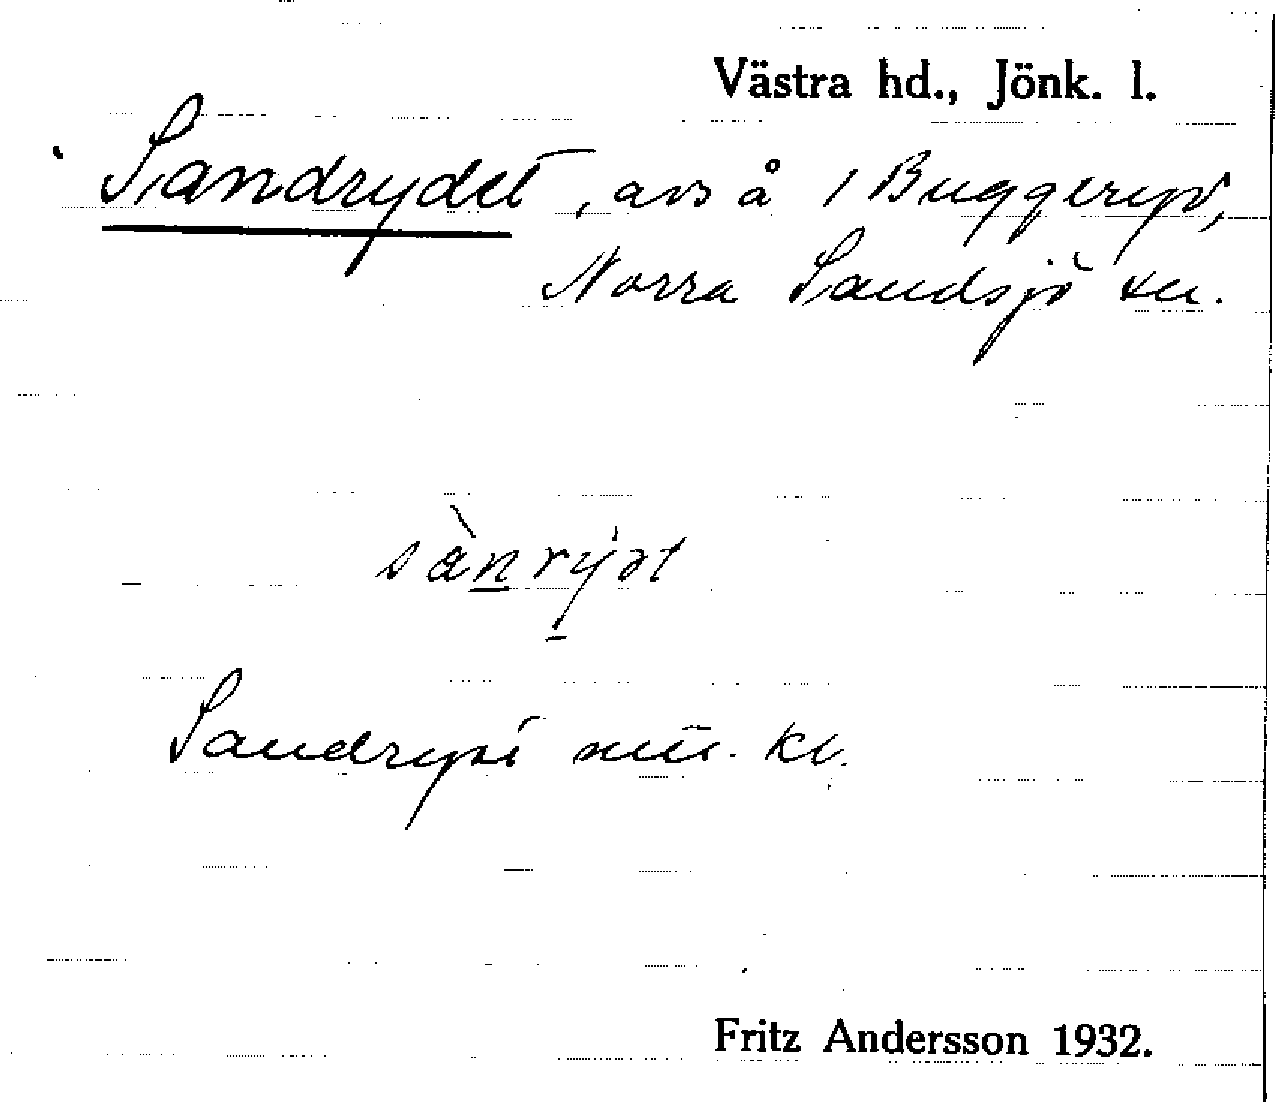 Västra hd., Jönk. l.
Sandrydet, avs å 1 Buggeryd,
Norra Sandsjö sn.
sànrýdt
Sandryd
Fritz Andersson 1932.